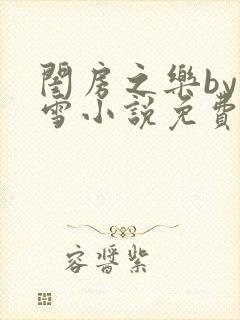 閨房之樂by
雪小説免費
容晉紫